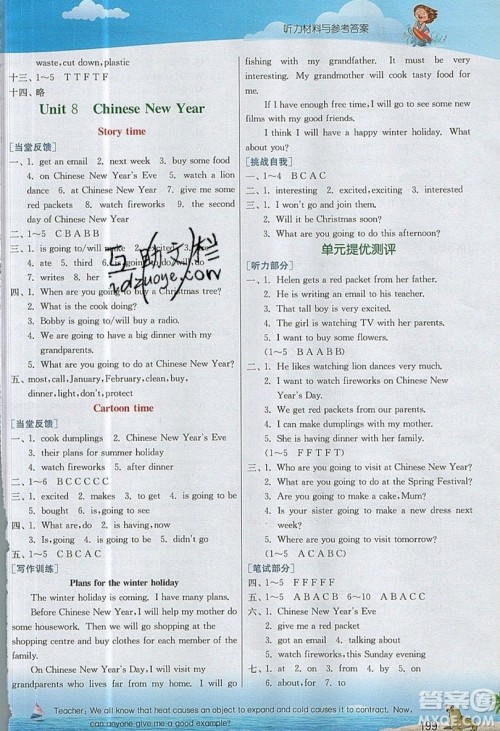 听力材料与参考答案
waste, cut down, plastic
十三、1~5 TTFTF
十四、略
Unit 8 Chinese New Year
Story time
[当堂反馈]
一、1. get an email 2. next week 3. buy some food
4. on Chinese New Year's Eve 5. watch a lion
dance 6. at Chinese New Year 7. give me some
red packets 8. watch fireworks 9. the second
day of Chinese New Year
二、1~5 CBABB
三、1. is going to/will buy 2. excited 3.
4. ate 5. third 6. is going to do/will do
7. writes 8. her
四、1. When are you going to buy a Christmas tree?
2. What is the cook doing?
3. Bobby is going to/will buy a radio.
4. We are going to have a big dinner with my
grandparents.
5. What are you going to do at Chinese New Year?
五、most, call, January, February, clean, buy,
dinner, light, get, dumpling
Cartoon time
[当堂反馈]
一、1. cook dumplings 2. Chinese New Year's Eve
3. their plans for summer holiday
4. watch fireworks 5. after dinner
二、1~6 CCCCCC
三、1. excited 2. makes 3. to 4. is going to be
5. bought 6. is going to be
四、1. What are, do 2. is, going to, tomorrow
3. Is, going to 4. is going to do 5. didn't go
五、1~5 CBCAC
[写作训练]
Plans for the winter holiday
The winter holiday is coming. I have many plans.
Before Chinese New Year, I will help my mother do
some housework. Then we are going to go shopping at
the shopping centre and buy clothes for each family
member.
On Chinese New Year's Day, I will visit my
grandparents who live far away from us. I will go
fishing with my grandfather. It must be very
interesting. My grandmother will cook tasty food for
me.
If I have enough free time, I will go to see some new
films with my good friends.
I think I will have a happy winter holiday. What
about you?
[挑战自我]
一、1~4 BCAC
二、1. interesting 2. excited, exciting 3. interested
三、1. Smith is not going to visit China next week.
2. Will it be Christmas soon?
3. What are you going to do this afternoon?
单元提优测评
[听力部分]
一、1. Helen gets a red packet from her parents.
2. He is writing an email to his teacher.
3. That tall boy is very excited.
4. The girl is watching TV with her parents.
5. I want to buy some flowers.
(1~5 BAABB)
二、1. He likes watching lion dances very much.
2. I want to watch fireworks on Chinese New
Year's Day.
3. We get red packets from our parents.
4. I can make dumplings with my mum.
5. She is having dinner with her family.
(1~5 FFTFT)
三、1. Who are you going to visit at Chinese New Year?
2. What are you going to do at the Spring Festival?
3. Are you going to make a cake, Mum?
4. What did you do last Chinese New Year?
5. What are you going to do tomorrow?
(1~5 ABACC)
[笔试部分]
四、1~5 FFFFF
五、1~5 ABACB 6~10 ABACC
六、1. Chinese New Year's Eve
2. give me a red packet
3. got an email 4. talking about
5. watched a lion dance
七、1. at 2. from 3. for, of 4. out 5. on
6. about, for 7. to
Teacher: We all know that heat causes an object to expand and cold causes it to contract. Now,
can anyone give me a good example?
199
互助文栏
hdzuoye.com
答案圈
MXQE.COM